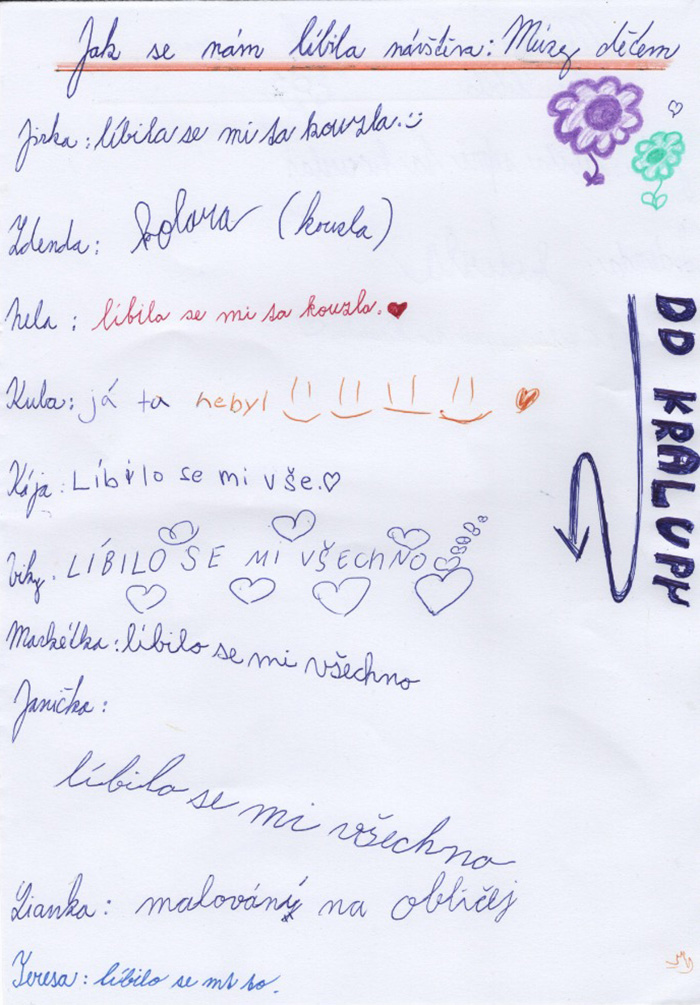 Jak se nám líbila návštěva: Múzy dětem
Jirka: líbila se mi ta kouzla.
Zdenda: (kouzla)
Nela: líbila se mi ta kouzla.
Kuba: já ta nebyl
Kája: Líbilo se mi vše.
Viky: LÍBILO SE MI VŠECHNO
Markétka: líbilo se mi všechno
Janička:
líbilo se mi všechno
Lianka: malování na obličej
Tereza: líbilo se mi to.
DD KRALUPY